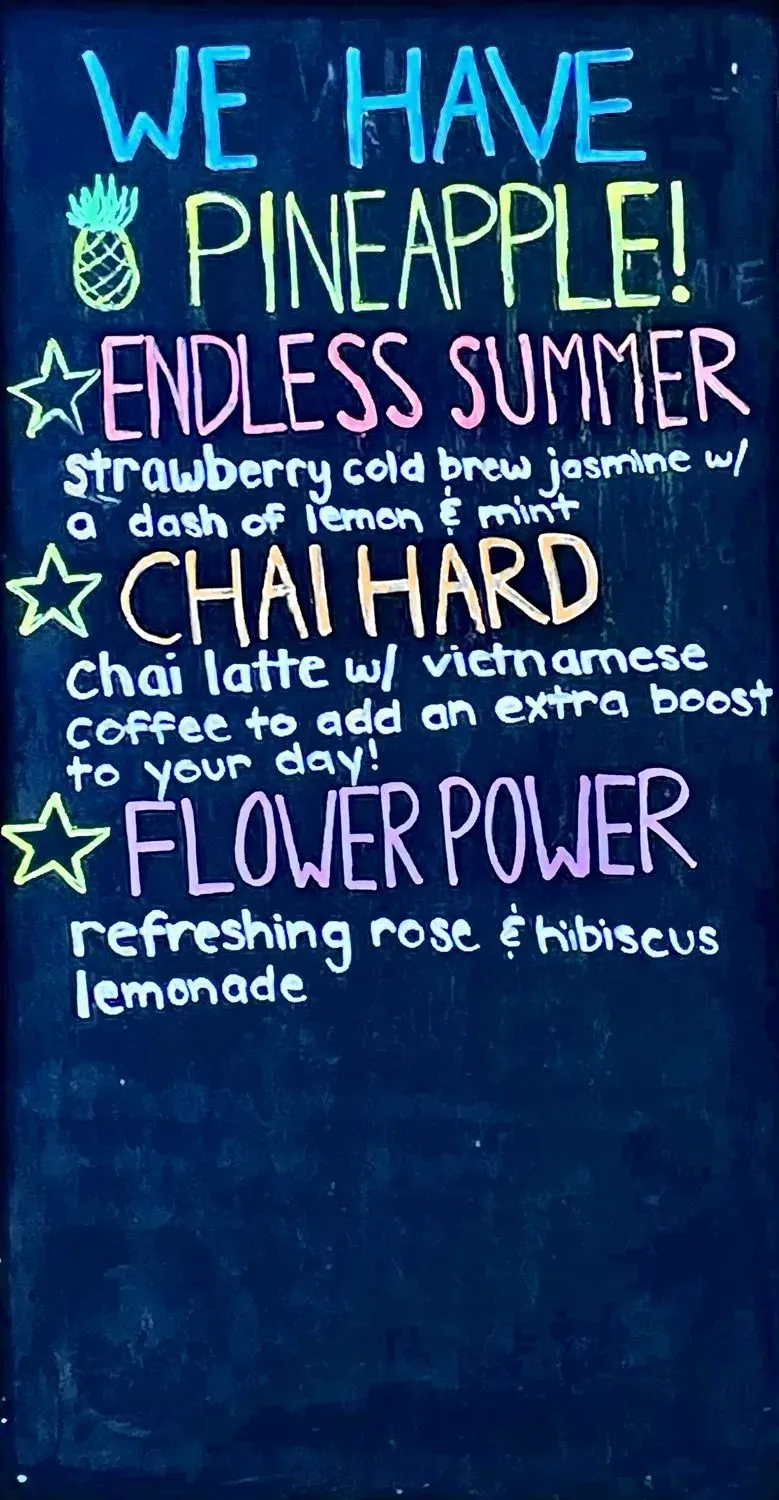 WE HAVE
PINEAPPLE!
ENDLESS SUMMER
strawberry cold brew jasmine w/
a dash of lemon & mint
CHAI HARD
chai latte w/ vietnamese
coffee to add an extra boost
to your day!
FLOWER POWER
refreshing rose & hibiscus
lemonade